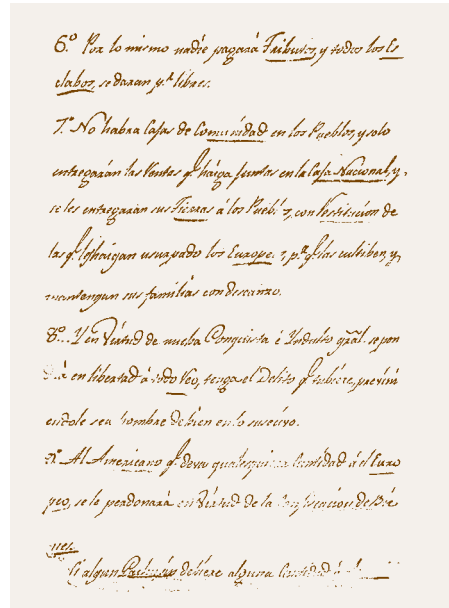 6.º Por lo mismo nadie pagará Tributos, y todos los Es
clabos, se daran p.r libres.
7.º No habra Cajas de Comunidad en los Pueblos, y solo
entregarán las Rentas q.e haiga juntas en la Caja Nacional, y
se les entregarán sus Tierras á los Pueblos, con Restitución de
las q.e les haigan usurpado los Europeos, p.a q.e las cultiben, y
mantengan sus familias con descanzo.
8.º Y en Virtud de nueba Conquista é Yndulto gral. se pon
drá en libertad á todo Reo, tenga el Delito q.e tubiere, previni
endole sea hombre de bien en lo suscesivo.
9.º Al Americano q.e deva qualesquiera Cantidad á el Euro
peo, se le perdonará en Virtud de la Confiscacion de Bie
nes.
Si algun deviere alguna Cantidad á